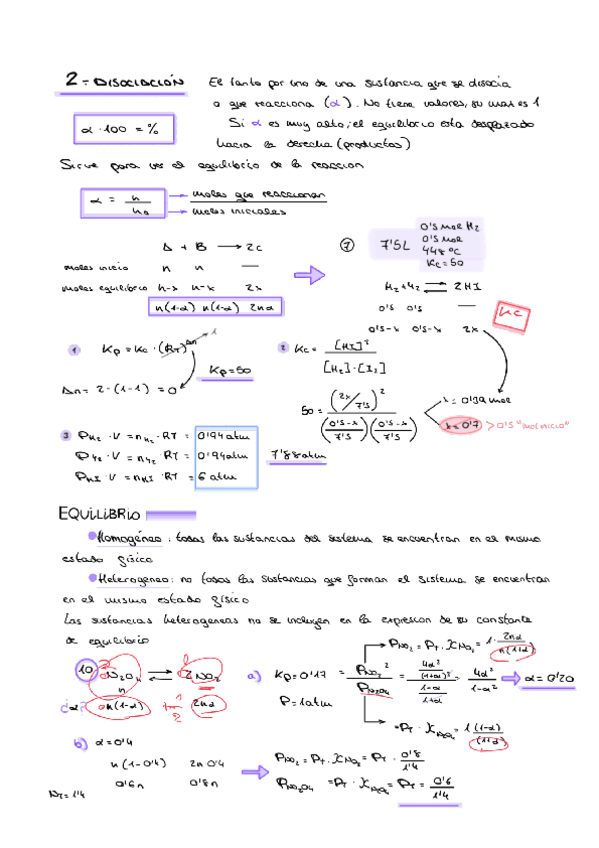 2- DISOCIACIÓN El tanto por uno de una sustancia que se disocia
o que reacciona (α). No tiene valores, su max es 1
α · 100 = % Si α es muy alto, el equilibrio esta desplazado
hacia la derecha (productos)
Sirve para ver el equilibrio de la reaccion
α = n / n₀ → moles que reaccionan
→ moles iniciales
A + B → 2C
moles inicio n n —
moles equilibrio n-x n-x 2x
n(1-α) n(1-α) 2nα
7 7'5L 0'5 mol H₂
0'5 mol
448 °C
Kc = 50
H₂ + I₂ ⇌ 2HI
0'5 0'5 —
0'5-x 0'5-x 2x
Kc
1 Kp = Kc · (RT)^Δn 1
Kp = 50
Δn = 2 - (1-1) = 0
2 Kc = [HI]² / [H₂]·[I₂]
50 = (2x/7'5)² / (0'5-x / 7'5)(0'5-x / 7'5)
x = 0'39 mol
x = 0'7 > 0'5 "mol inicio"
3 P_H₂ · V = n_H₂ · RT = 0'94 atm
P_I₂ · V = n_I₂ · RT = 0'94 atm 7'88 atm
P_HI · V = n_HI · RT = 6 atm
EQUILIBRIO
Homogéneo: todas las sustancias del sistema se encuentran en el mismo
estado físico
Heterogeneo: no todas las sustancias que forman el sistema se encuentran
en el mismo estado físico
Las sustancias heterogeneas no se incluyen en la expresion de su constante
de equilibrio
10 N₂O₄ ⇌ 2NO₂
n
¿α? n(1-α) 2nα
a) Kp = 0'17 = P_NO₂² / P_N₂O₄ = 4α²/(1+α)² / 1-α/1+α = 4α² / 1-α² → α = 0'20
P = 1 atm
P_NO₂ = P_T · X_NO₂ = 1 · 2nα / n(1+α)
= P_T · X_N₂O₄ = 1 (1-α) / (1+α)
b) α = 0'4
n(1-0'4) 2n 0'4
0'6n 0'8n
N_T = 1'4
P_NO₂ = P_T · X_NO₂ = P_T · 0'8 / 1'4
P_NO₂O₄ = P_T · X_N₂O₄ = P_T = 0'6 / 1'4